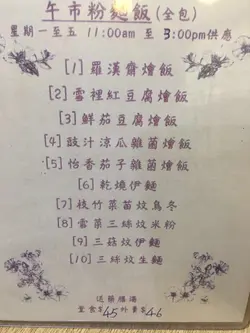 午市粉麵飯(全包)
星期一至五 11:00am 至 3:00pm供應
[1] 羅漢齋燴飯
[2] 雪裡紅豆腐燴飯
[3] 鮮茄豆腐燴飯
[4] 豉汁涼瓜雜菌燴飯
[5] 怡香茄子雜菌燴飯
[6] 乾燒伊麵
[7] 枝竹菜苗炆烏冬
[8] 雪菜三絲炆米粉
[9] 三菇炆伊麵
[10] 三絲炆生麵
送藥膳湯
堂食$45外賣$46